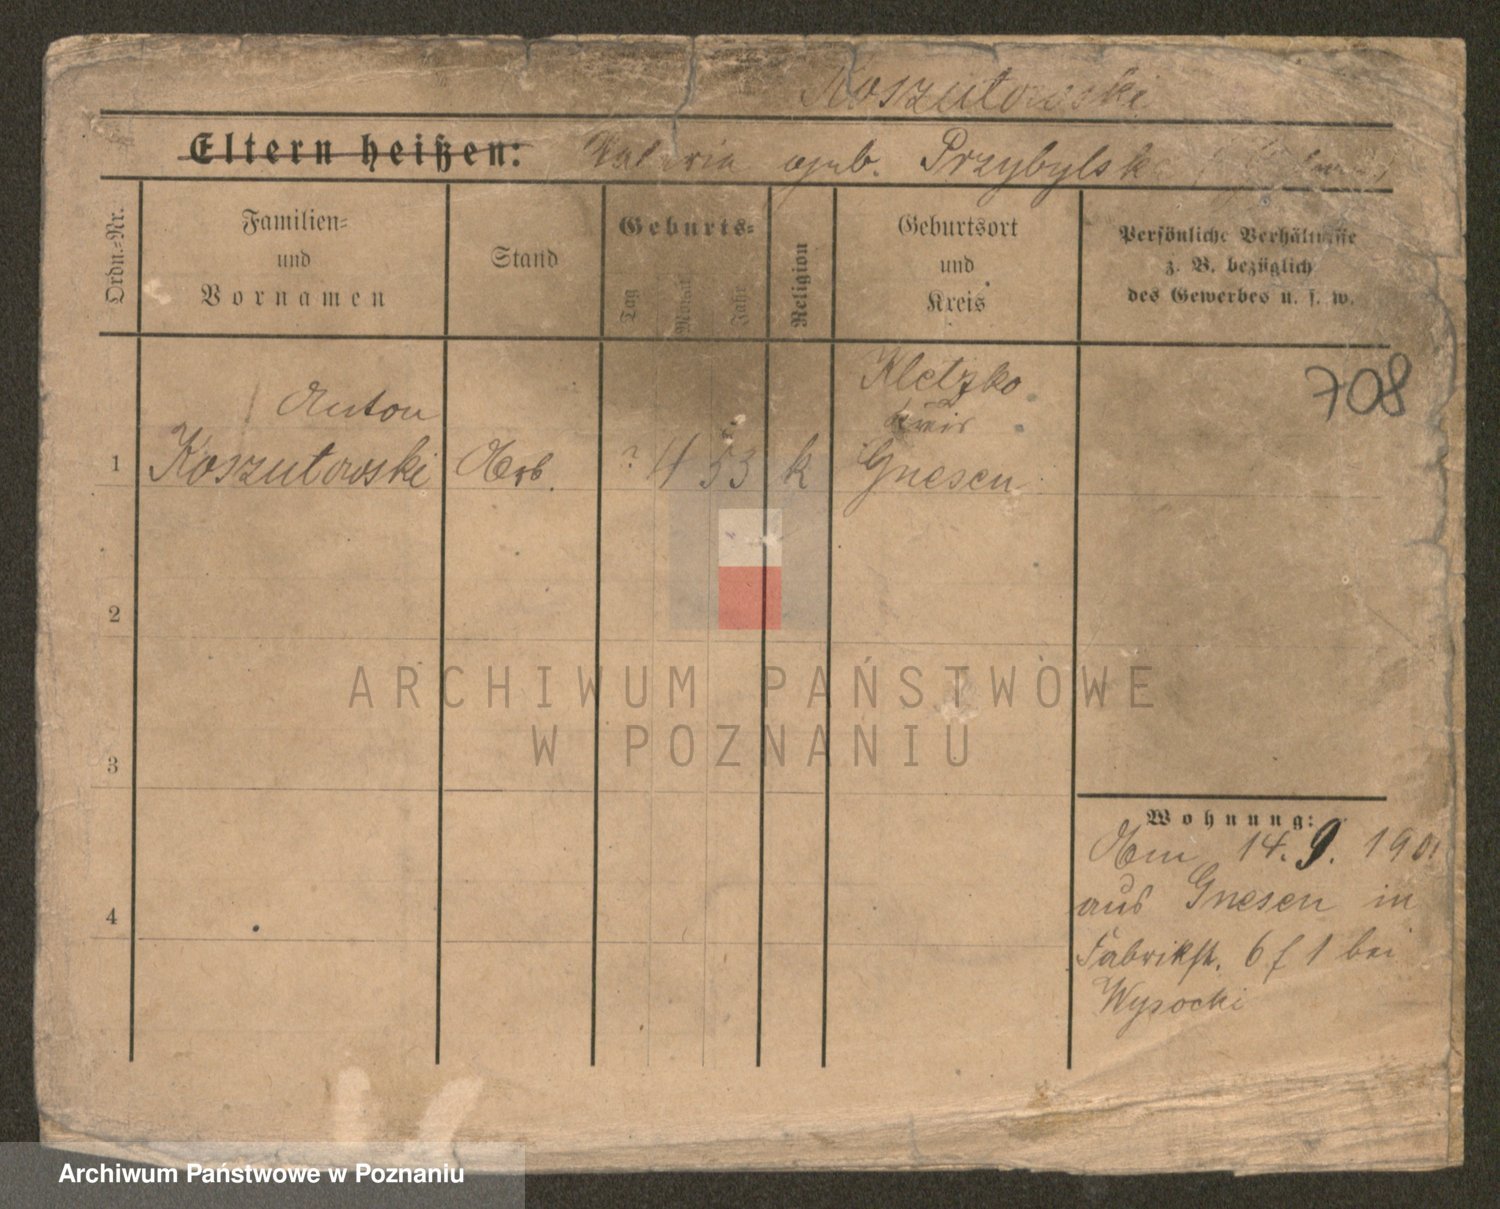 Koszutowski
Eltern heißen: Valeria geb. Przybylska
Ordn.=Nr.
Familien=
und
Vornamen
Stand
Geburts=
Tag
Monat
Jahr
Religion
Geburtsort
und
Kreis
Persönliche Verhältnisse
z. B. bezüglich
des Gewerbes u. s. w.
708
Anton
1 Koszutowski Arb. ? 4 53 k
Kletzko
Kreis
Gnesen
2
3
4
Wohnung:
Am 14. 9. 1901
aus Gnesen in
Fabrikst. 6 f 1 bei
Wysocki
ARCHIWUM PAŃSTWOWE
W POZNANIU
Archiwum Państwowe w Poznaniu